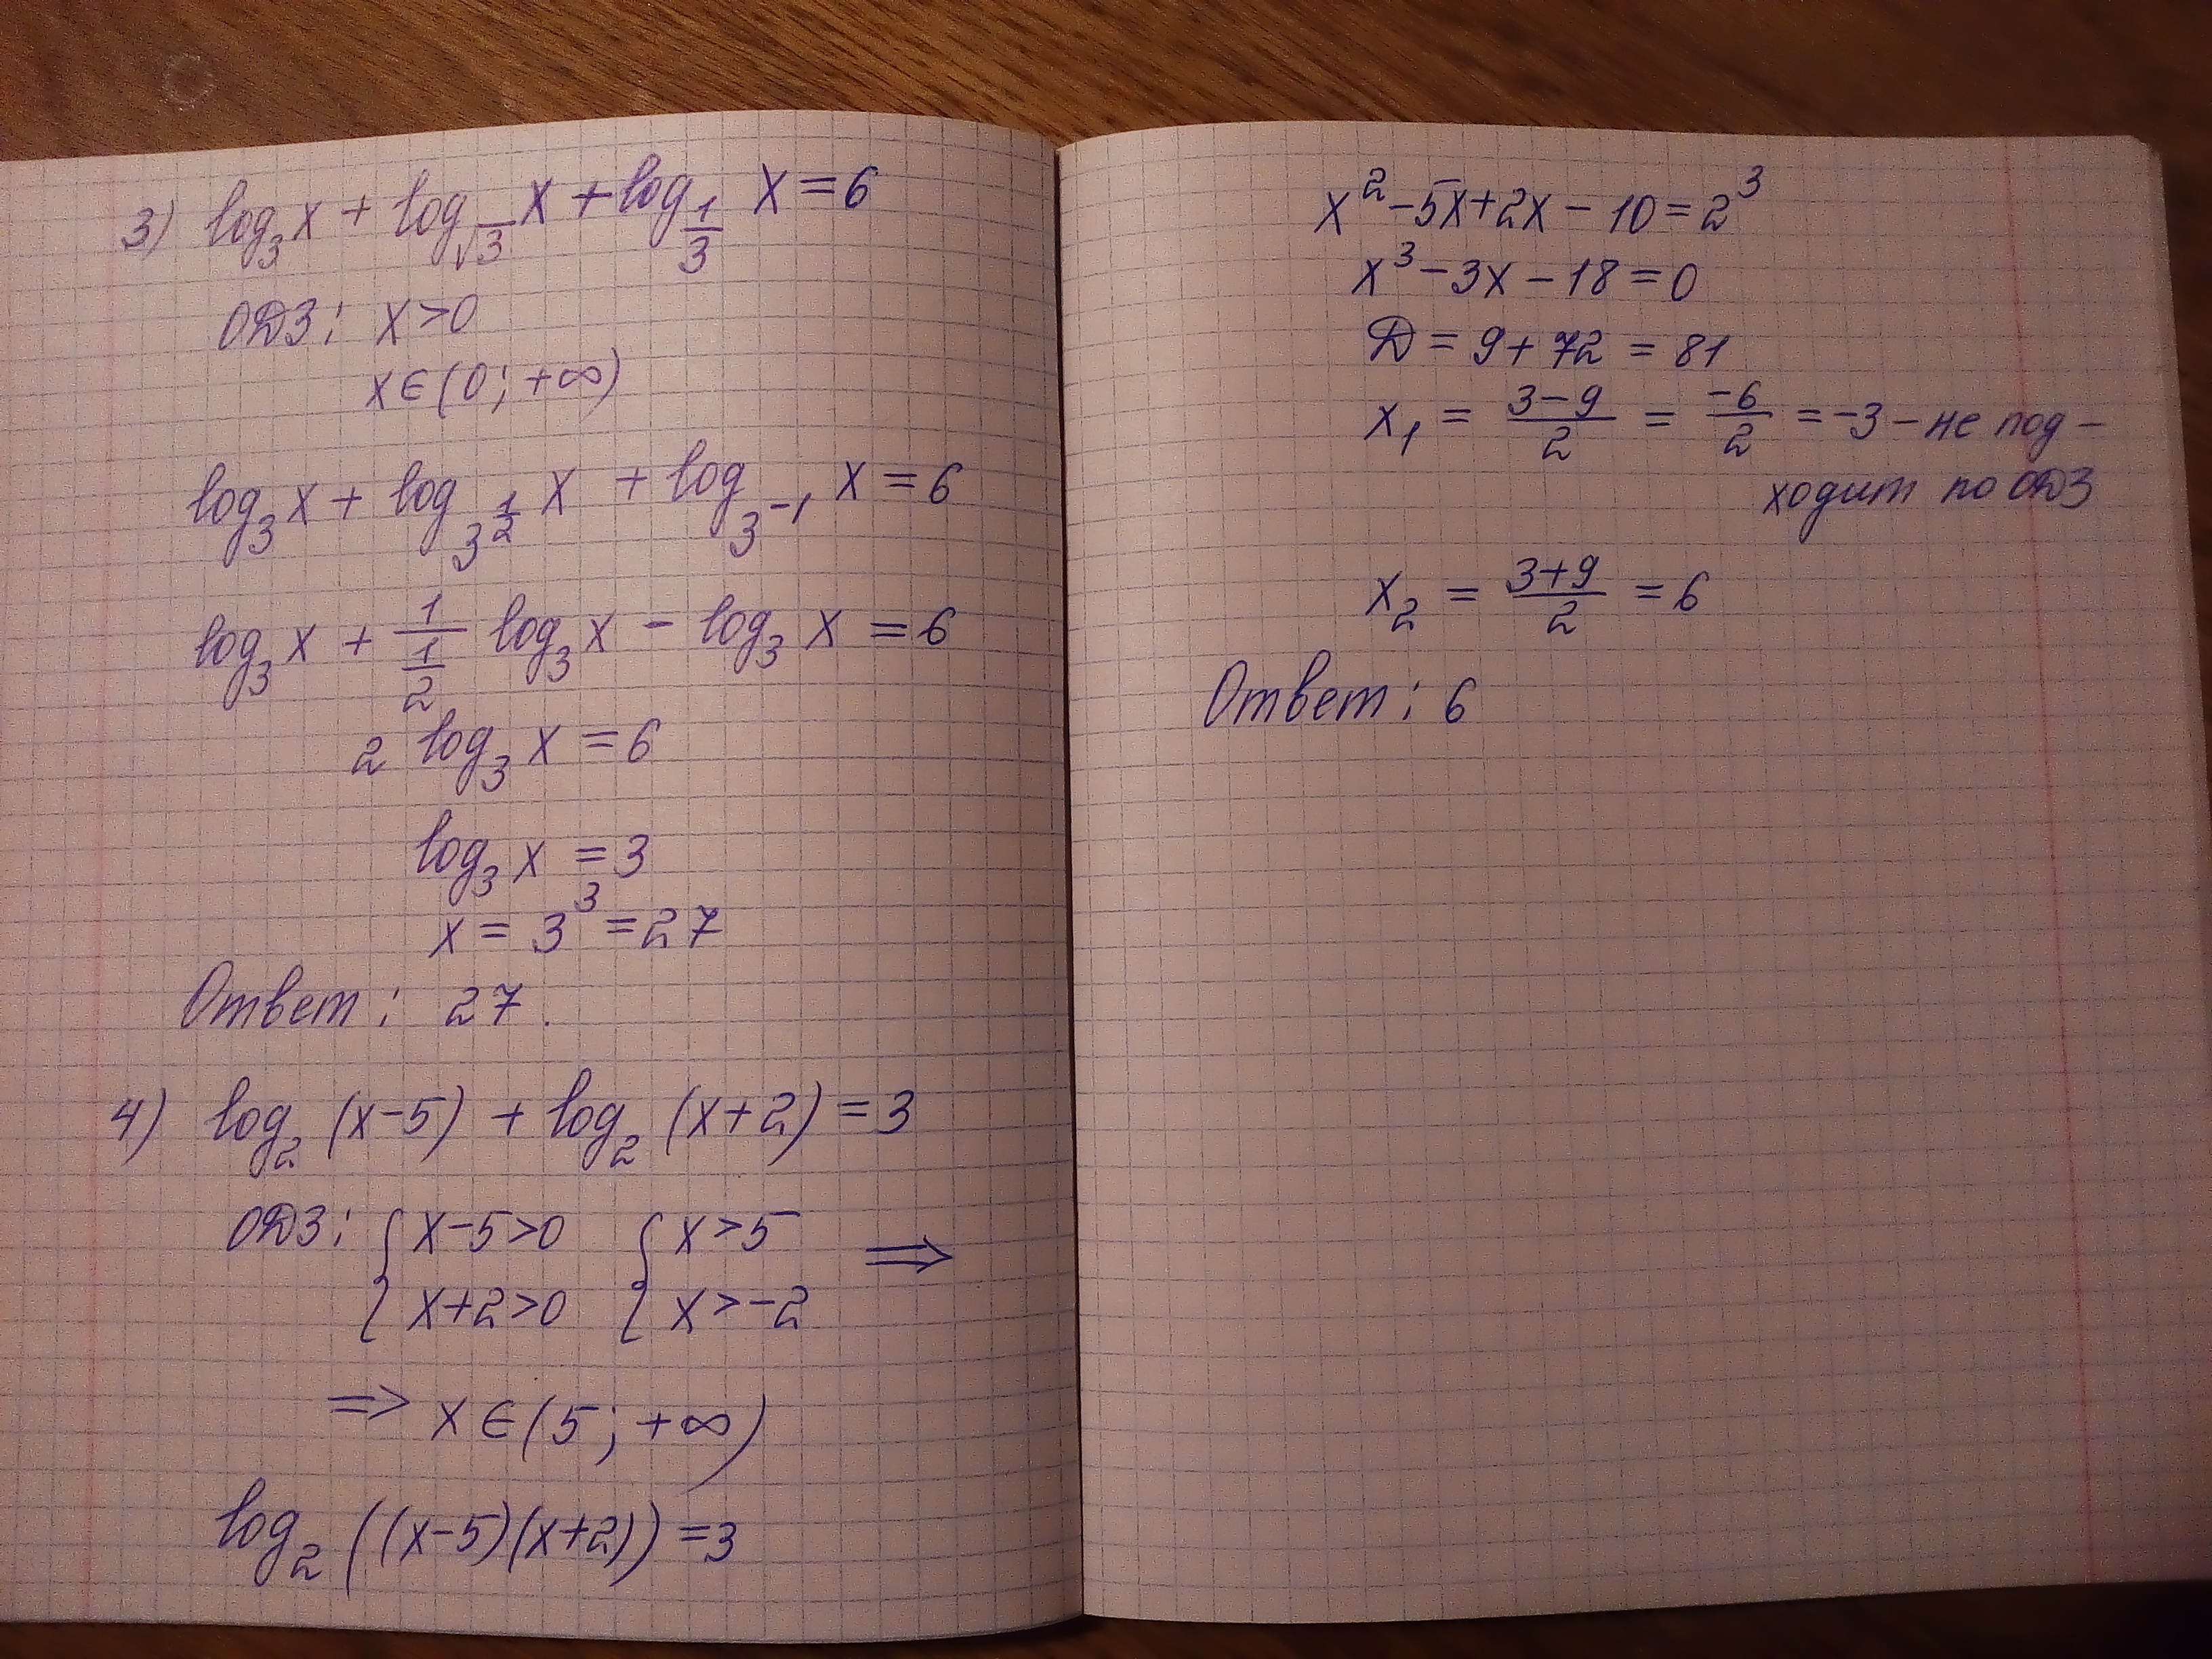 3) log₃x + log_√3 x + log_1/3 x = 6
ОДЗ: x>0
x∈(0; +∞)
log₃x + log_3^1/2 x + log_3^-1 x = 6
log₃x + 1/(1/2) log₃x - log₃x = 6
2 log₃x = 6
log₃x = 3
x = 3³ = 27
Ответ: 27.
4) log₂(x-5) + log₂(x+2) = 3
ОДЗ: { x-5>0 { x>5 ⟹
{ x+2>0 { x>-2
=> x∈(5; +∞)
log₂((x-5)(x+2)) = 3
x²-5x+2x-10=2³
x³-3x-18=0
Д = 9+72 = 81
x₁ = (3-9)/2 = -6/2 = -3 - не под-
ходит по ОДЗ
x₂ = (3+9)/2 = 6
Ответ: 6